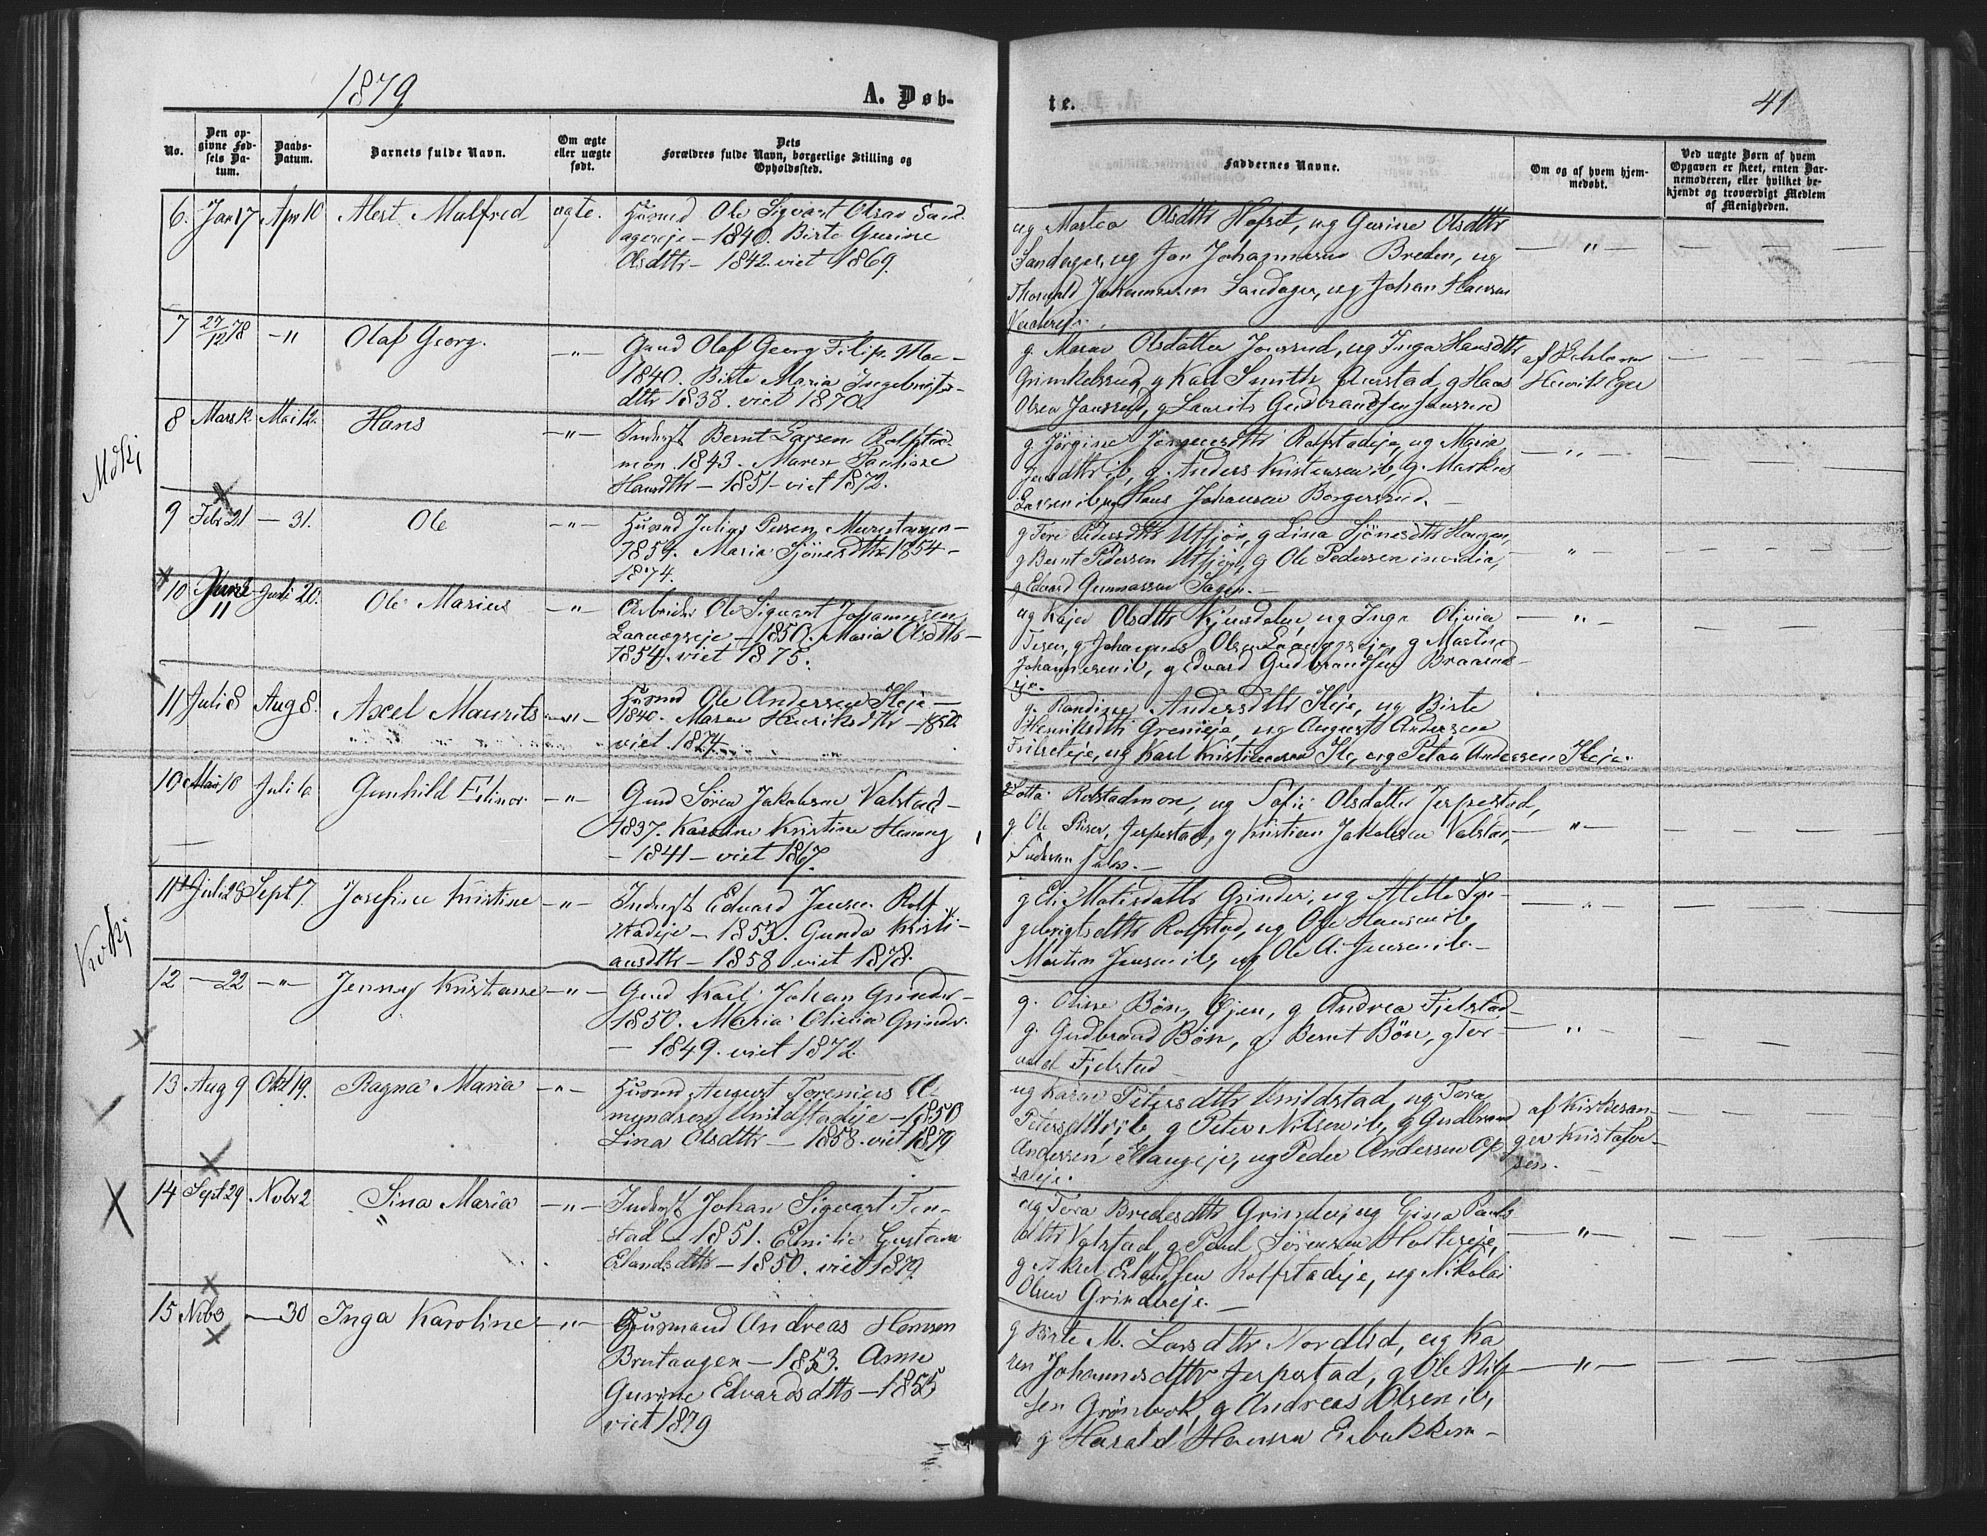 1879
A. Døb-
te.
41
No.
Den op-
givne Fød-
sels Da-
tum.
Daabs-
Datum.
Barnets fulde Navn.
Om ægte
eller uægte
født.
Dets
Forældres fulde Navn, borgerlige Stilling og
Opholdssted.
Faddernes Navne.
Om og af hvem hjem-
medøbt.
Ved uægte Børn af hvem
Opgaven er skeet, enten Bar-
nemoderen, eller hvilket be-
kjendt og troværdigt Medlem
af Menigheden.
6. Jan 17 Apr 10 Alert Malfred ægte. Husmd Ole Sigvart Olsen Sand-
agereje – 1840. Birte Gurine
Olsdttr – 1842. viet 1869.
ug Martea Olsdttr Hofset, ug Gurine Olsdttr
Sandager, ug Jon Johannesen Breden, ug
Thorvald Johannesen Sandager, ug Johan Hansen
7 27/12 78 –„ Olaf Georg. –„– Gmd Olaf Georg Filip Moe –
1840. Birte Maria Ingebrigts-
dttr 1838. viet 1870.
g. Maren Olsdatter Jonsrud, ug Inga Hansdttr
Grinkelsrud, g Karl Smith Aurstad, g Hans
Olsen Jonsrud, g Laurits Gudbrandsen Jonsrud
af Ekhlarn
Henrik Eger
Mdkj
8 Mars 12 Mai 12. Hans –„– Inderst Bernt Larsen Rolfstad
mon. 1843. Maren Pauline
Hansdttr – 1851 – viet 1872.
g Jørgine Jørgensdttr Rolfstadeje, ug Maria
Jensdttr ib, g. Anders Kristensen ib, g. Markus
Larsen ib, ug Hans Johansen Borgersrud. –
9 Febr 21 – 31. Ole –„– Husmd Julius Persen Murstangen –
1859. Maria Sjönesdttr 1854 –
1874.
g Tore Pedersdttr Utsjøn, g Lina Sjönesdttr Haugen,
g Bernt Pedersen Utsjøn, g Ole Pedersen invidia,
g Edvard Gunnarsen Sagen. –
10 Juni
11 Juli 20. Ole Marius –„– Arbeider Ole Sigvart Johannessen
Laanogseje – 1850. Maria Olsdttr –
1854. viet 1875.
ug Kaja Olsdttr Kjønsdalen, ug Inga Olivia
Tesen, g Johannes Olsen Laanogseje, g Martin
Johannesen ib, g Edvard Gudbrandsen Braatne-
eje.
11 Juli 8 Aug 8. Axel Maurits –„– Husmd Ole Andersen Ileje –
1840. Maren Henriksdttr – 1852.
viet 1874.
g. Randine Andersdttr Ileje, ug Birte
Henriksdttr Grenieje, ug August Andersen
Frilseteje, ug Karl Kristiansen Ile, ug Petra Andersen Ileje.
10 Mai 18 Juli 6 Gunhild Elinor –„– Gmd Søren Jakobsen Valstad –
1837. Karoline Kristine Hennng
– 1841 – viet 1867.
g Lotta Rolstadmon, ug Sofie Olsdatter Jerpestad,
g Ole Riser, Jerpestad, g Kristian Jakobsen Valstad,
11 Juli 28 Sept 7. Josefine Kristine –„– Inderst Edvard Jensen Rolf
stadeje – 1853. Gunda Kristi-
ansdttr – 1858 viet 1878.
g Eli Matisdattr Grinder, ug Mette In-
gebrigtsdttr Rolfstad, ug Ole Hansen ib,
Martin Jensen ib, ug Ole A. Jensen ib. –
12 – 22 –„– Jenny Kristiane –„– Gmd Karl Johan Grinder –
1850. Maria Olivia Grinder.
– 1849. viet 1872.
g. Oline Bön, Øjen, g Andrea Fjelstad –
g. Gudbrand Bön, g. Bernt Bön, g Tor-
vald Fjelstad –
13 Aug 9 Okt 19. Ragna Maria –„– Husmd August Torenius A-
myndsen Unildstadeje – 1850
Lina Olsdttr – 1858. viet 1879
ug Karen Petersdttr Unildstad, ug Tora
Petersdttr ib g Peter Nilsen ib, g Gudbrand
Andersen Haugeje, ug Peder Andersen Op-
saleje.
af Kirkesan-
ger Kristofer-
sen. –
14 Sept 29 Novbr 2 Sina Maria –„– Inderst Johan Sigvart Ten-
stad – 1851. Emilie Gustava
Erlandsdttr – 1850. viet 1879.
ug Tora Bredesdttr Grinder, ug Gina Pauls
dttr Valstad g Paul Sørensen Holtereje,
g Aksel Erlandsen Rolfstadeje, ug Nikolai
Olsen Grindereje. –
15 Nvb 3 – 30 Inga Karoline –„– Husmand Andreas Hansen
Brutangen – 1853. Anne
Gurine Edvardsdttr – 1855
viet 1879
g Birte M. Larsdttr Nordlid, ug Ka
ren Johannesdttr Jerpestad, g Ole Nil-
sen Grønbæk, g Andreas Olsen ib,
g Harald Hansen Eibakken –